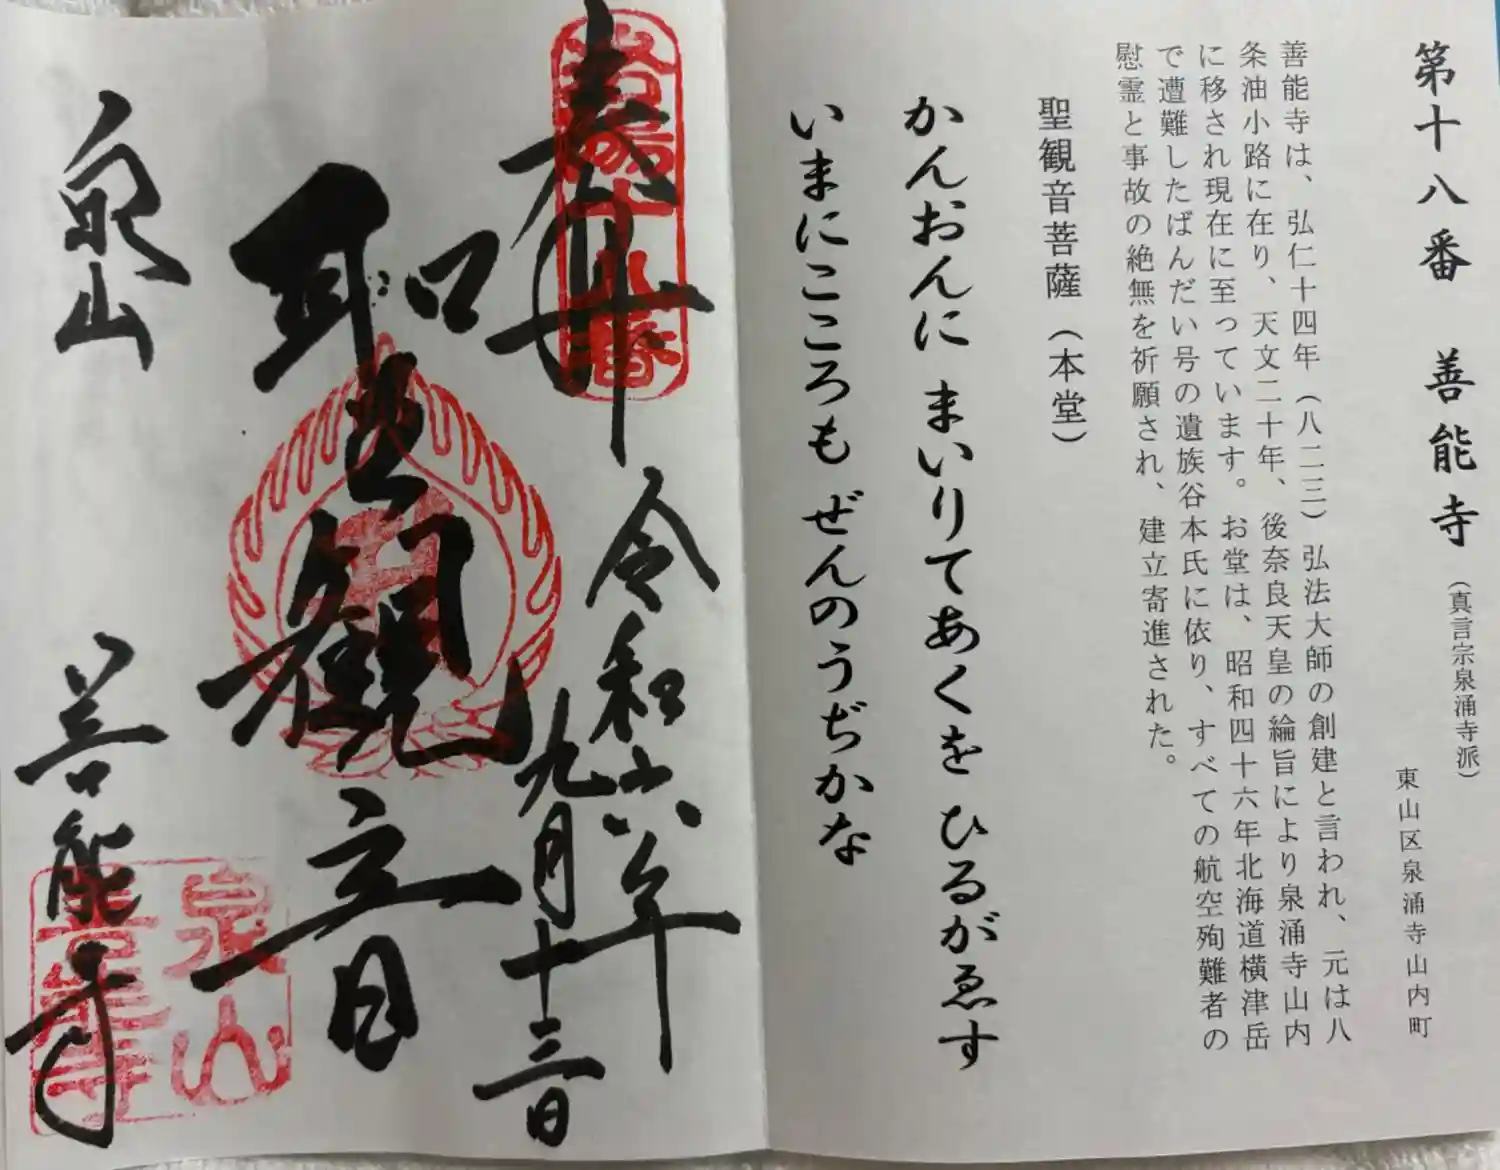 第十八番 善能寺（真言宗泉涌寺派）
東山区泉涌寺山内町
善能寺は、弘仁十四年（八二三）弘法大師の創建と言われ、元は八
条油小路に在り、天文二十年、後奈良天皇の綸旨により泉涌寺山内
に移され現在に至っています。お堂は、昭和四十六年北海道横津岳
で遭難したばんだい号の遺族谷本氏に依り、すべての航空殉難者の
慰霊と事故の絶無を祈願され、建立寄進された。
聖観音菩薩（本堂）
かんおんに まいりてあくを ひるがゑす
いまにこころも ぜんのうぢかな
奉拝
洛陽十八番
令和六年
九月十三日
聖観音
泉山
善能寺
泉山
善能寺